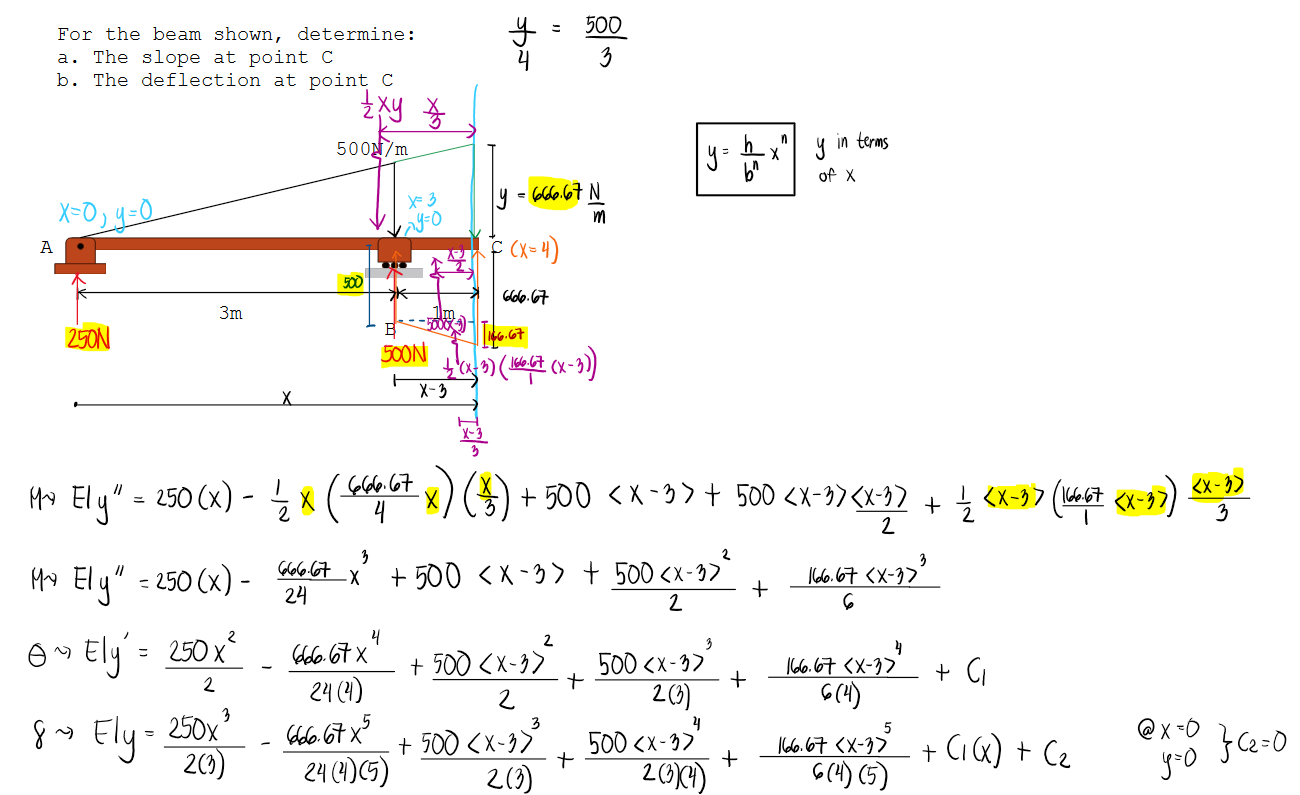 For the beam shown, determine:
a. The slope at point C
b. The deflection at point C
y/4 = 500/3
1/2 xy
x/3
500N/m
y = h/b^n x^n
y in terms of x
y = 666.67 N/m
x=0, y=0
x=3
y=0
A
C (x=4)
x-3/2
500
666.67
3m
1m
B
500(x-3)
166.67
250N
500N
1/2 (x-3)(166.67/1 (x-3))
x-3
x
x-3/3
M→ EIy" = 250(x) - 1/2 x (666.67/4 x)(x/3) + 500 <x-3> + 500 <x-3> <x-3>/2 + 1/2 <x-3> (166.67/1 <x-3>) <x-3>/3
M→ EIy" = 250(x) - 666.67/24 x^3 + 500 <x-3> + 500 <x-3>^2/2 + 166.67 <x-3>^3/6
θ→ EIy' = 250x^2/2 - 666.67x^4/24(4) + 500 <x-3>^2/2 + 500 <x-3>^3/2(3) + 166.67 <x-3>^4/6(4) + C1
δ→ EIy = 250x^3/2(3) - 666.67x^5/24(4)(5) + 500 <x-3>^3/2(3) + 500 <x-3>^4/2(3)(4) + 166.67 <x-3>^5/6(4)(5) + C1(x) + C2
@ x=0
y=0 } C2=0